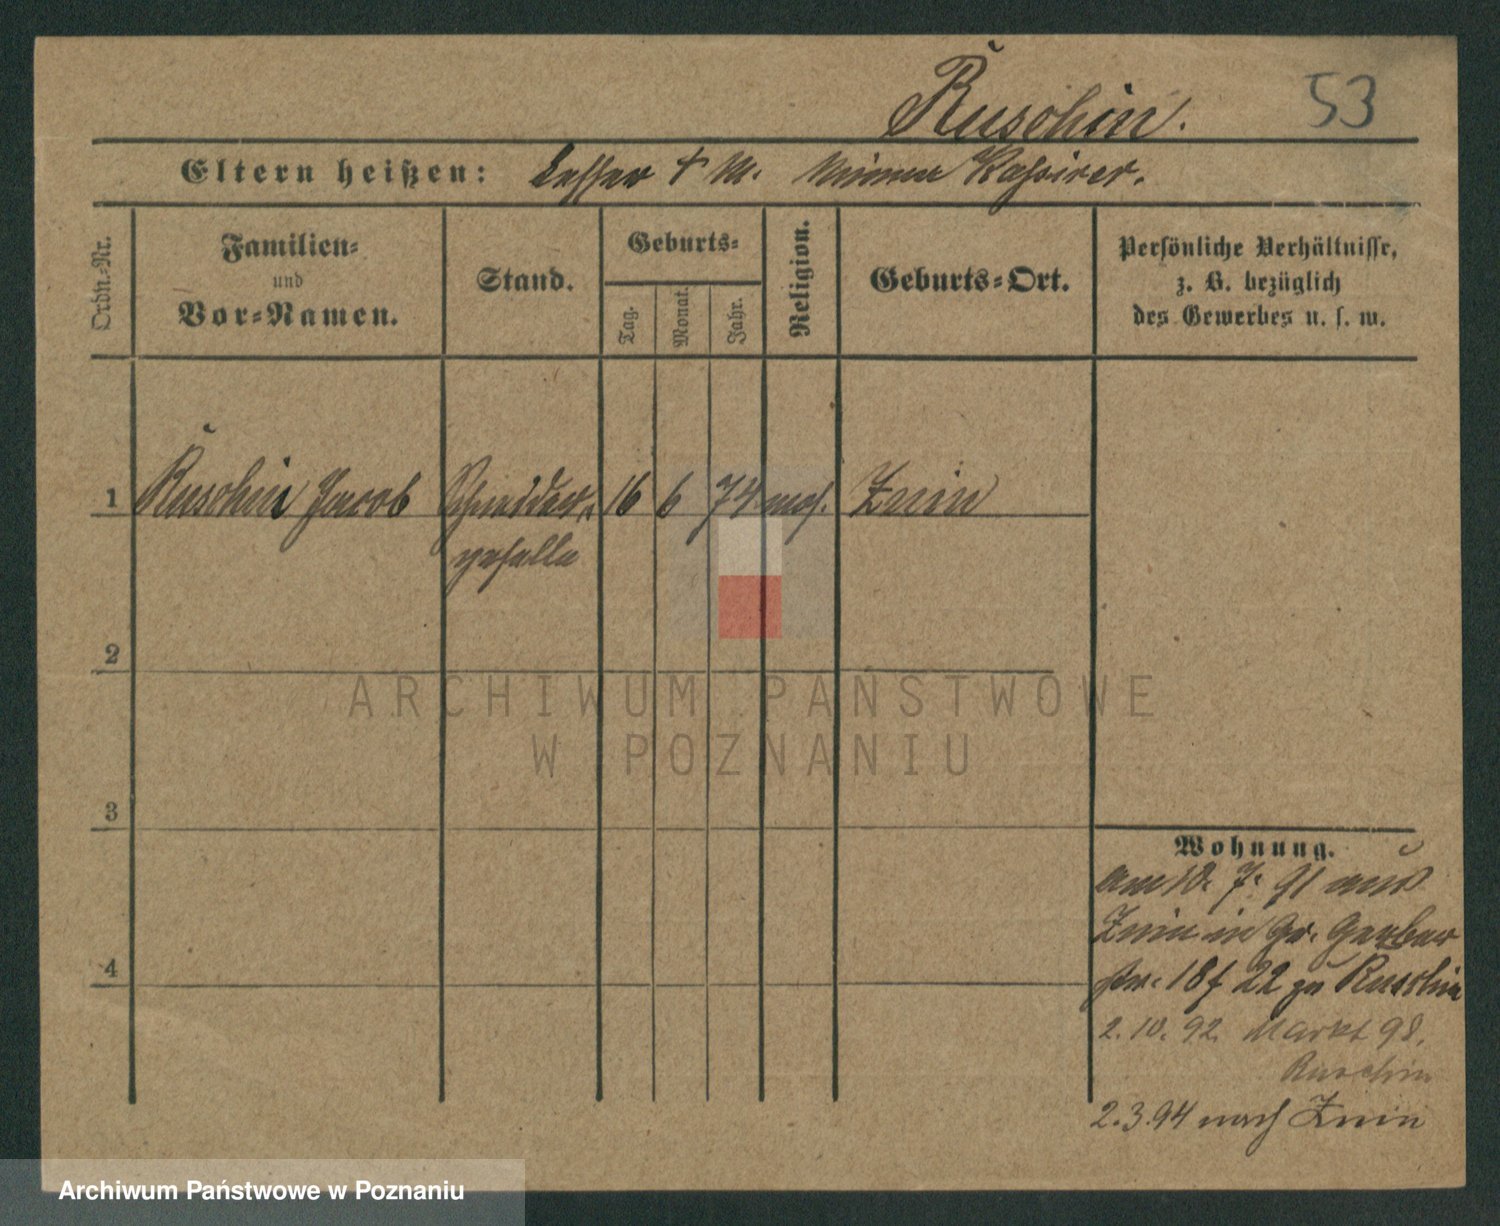 Ruschin. 53
Eltern heißen: Lesser † M. Minna Kassirer.
Ordn.-Nr.
Familien-
und
Vor-Namen.
Stand.
Geburts-
Tag.
Monat.
Jahr.
Religion.
Geburts-Ort.
Persönliche Verhältnisse,
z. B. bezüglich
des Gewerbes u. s. w.
1 Ruschin Jacob Schneider- 16 6 74 mos. Znin
geselle
2
3
4
Wohnung.
am 10. 7. 91 aus
Znin in Gr. Gerber
str. 18 f 22 zu Ruschin
2. 10. 92. Markt 98.
Ruschin
2. 3. 94 nach Znin
ARCHIWUM PAŃSTWOWE
W POZNANIU
Archiwum Państwowe w Poznaniu